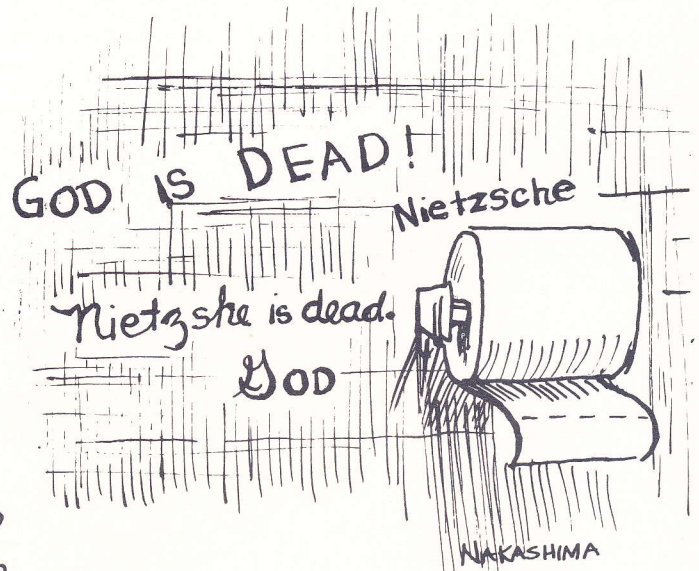 GOD IS DEAD!
Nietzsche
Nietzshe is dead.
GOD
NAKASHIMA